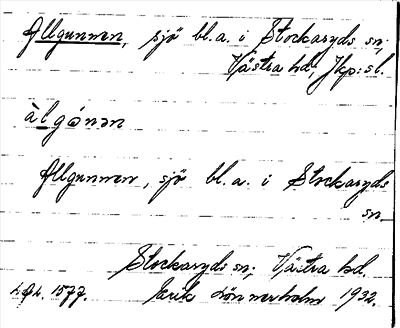 Allgunnen, sjö bl.a. i Stockaryds sn,
Västra hd, Jkp:s l.
àlgönən
Allgunnen, sjö bl.a. i Stockaryds
sn
Stockaryds sn, Västra hd.
1577. Erik Lönnerholm 1932.